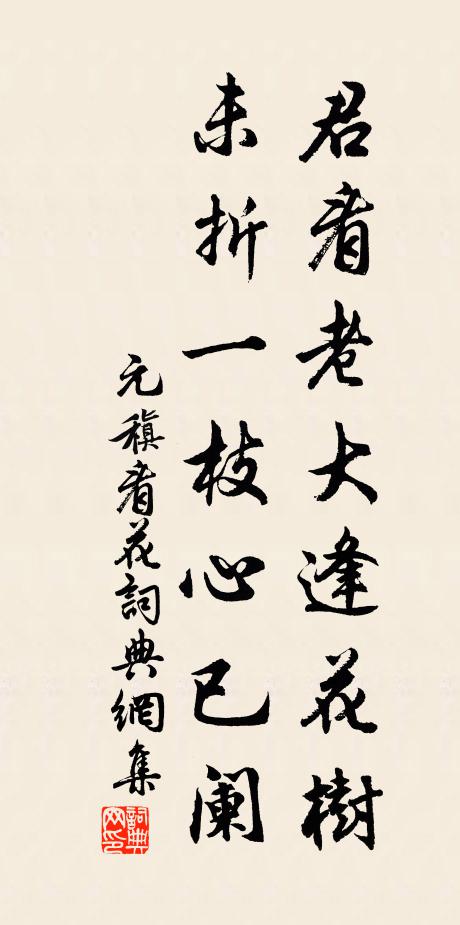 君看老大逢花樹
未折一枝心已阑
元稹看花詞典網集
詞典網印